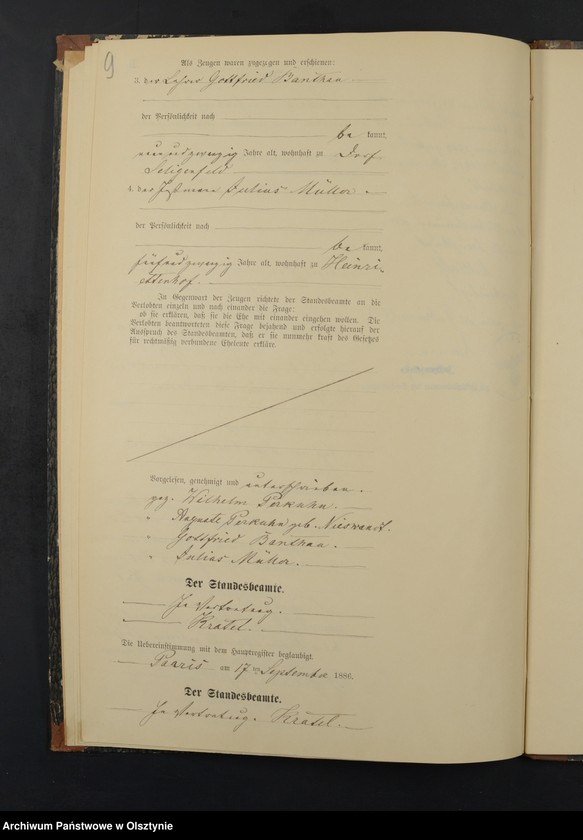 9
Als Zeugen waren zugezogen und erschienen:
3. der Gottfried Banthau
der Persönlichkeit nach
be kannt,
neunundzwanzig Jahre alt, wohnhaft zu Dorf
Seligenfeld
4. der Instmann Julius Müller
der Persönlichkeit nach
be kannt,
fünfundzwanzig Jahre alt, wohnhaft zu Heinri-
ettenhof.
In Gegenwart der Zeugen richtete der Standesbeamte an die
Verlobten einzeln und nach einander die Frage:
ob sie erklären, daß sie die Ehe mit einander eingehen wollen. Die
Verlobten beantworteten diese Frage bejahend und erfolgte hierauf der
Ausspruch des Standesbeamten, daß er sie nunmehr kraft des Gesetzes
für rechtmäßig verbundene Eheleute erkläre.
Vorgelesen, genehmigt und unterschrieben.
gez. Wilhelm Perkuhn.
" Auguste Perkuhn geb. Nieswandt.
" Gottfried Banthau.
" Julius Müller.
Der Standesbeamte.
In Vertretung.
Krätel.
Die Uebereinstimmung mit dem Hauptregister beglaubigt.
Paaris am 17 ten September 1886.
Der Standesbeamte.
In Vertretung. Krätel.
Archiwum Państwowe w Olsztynie